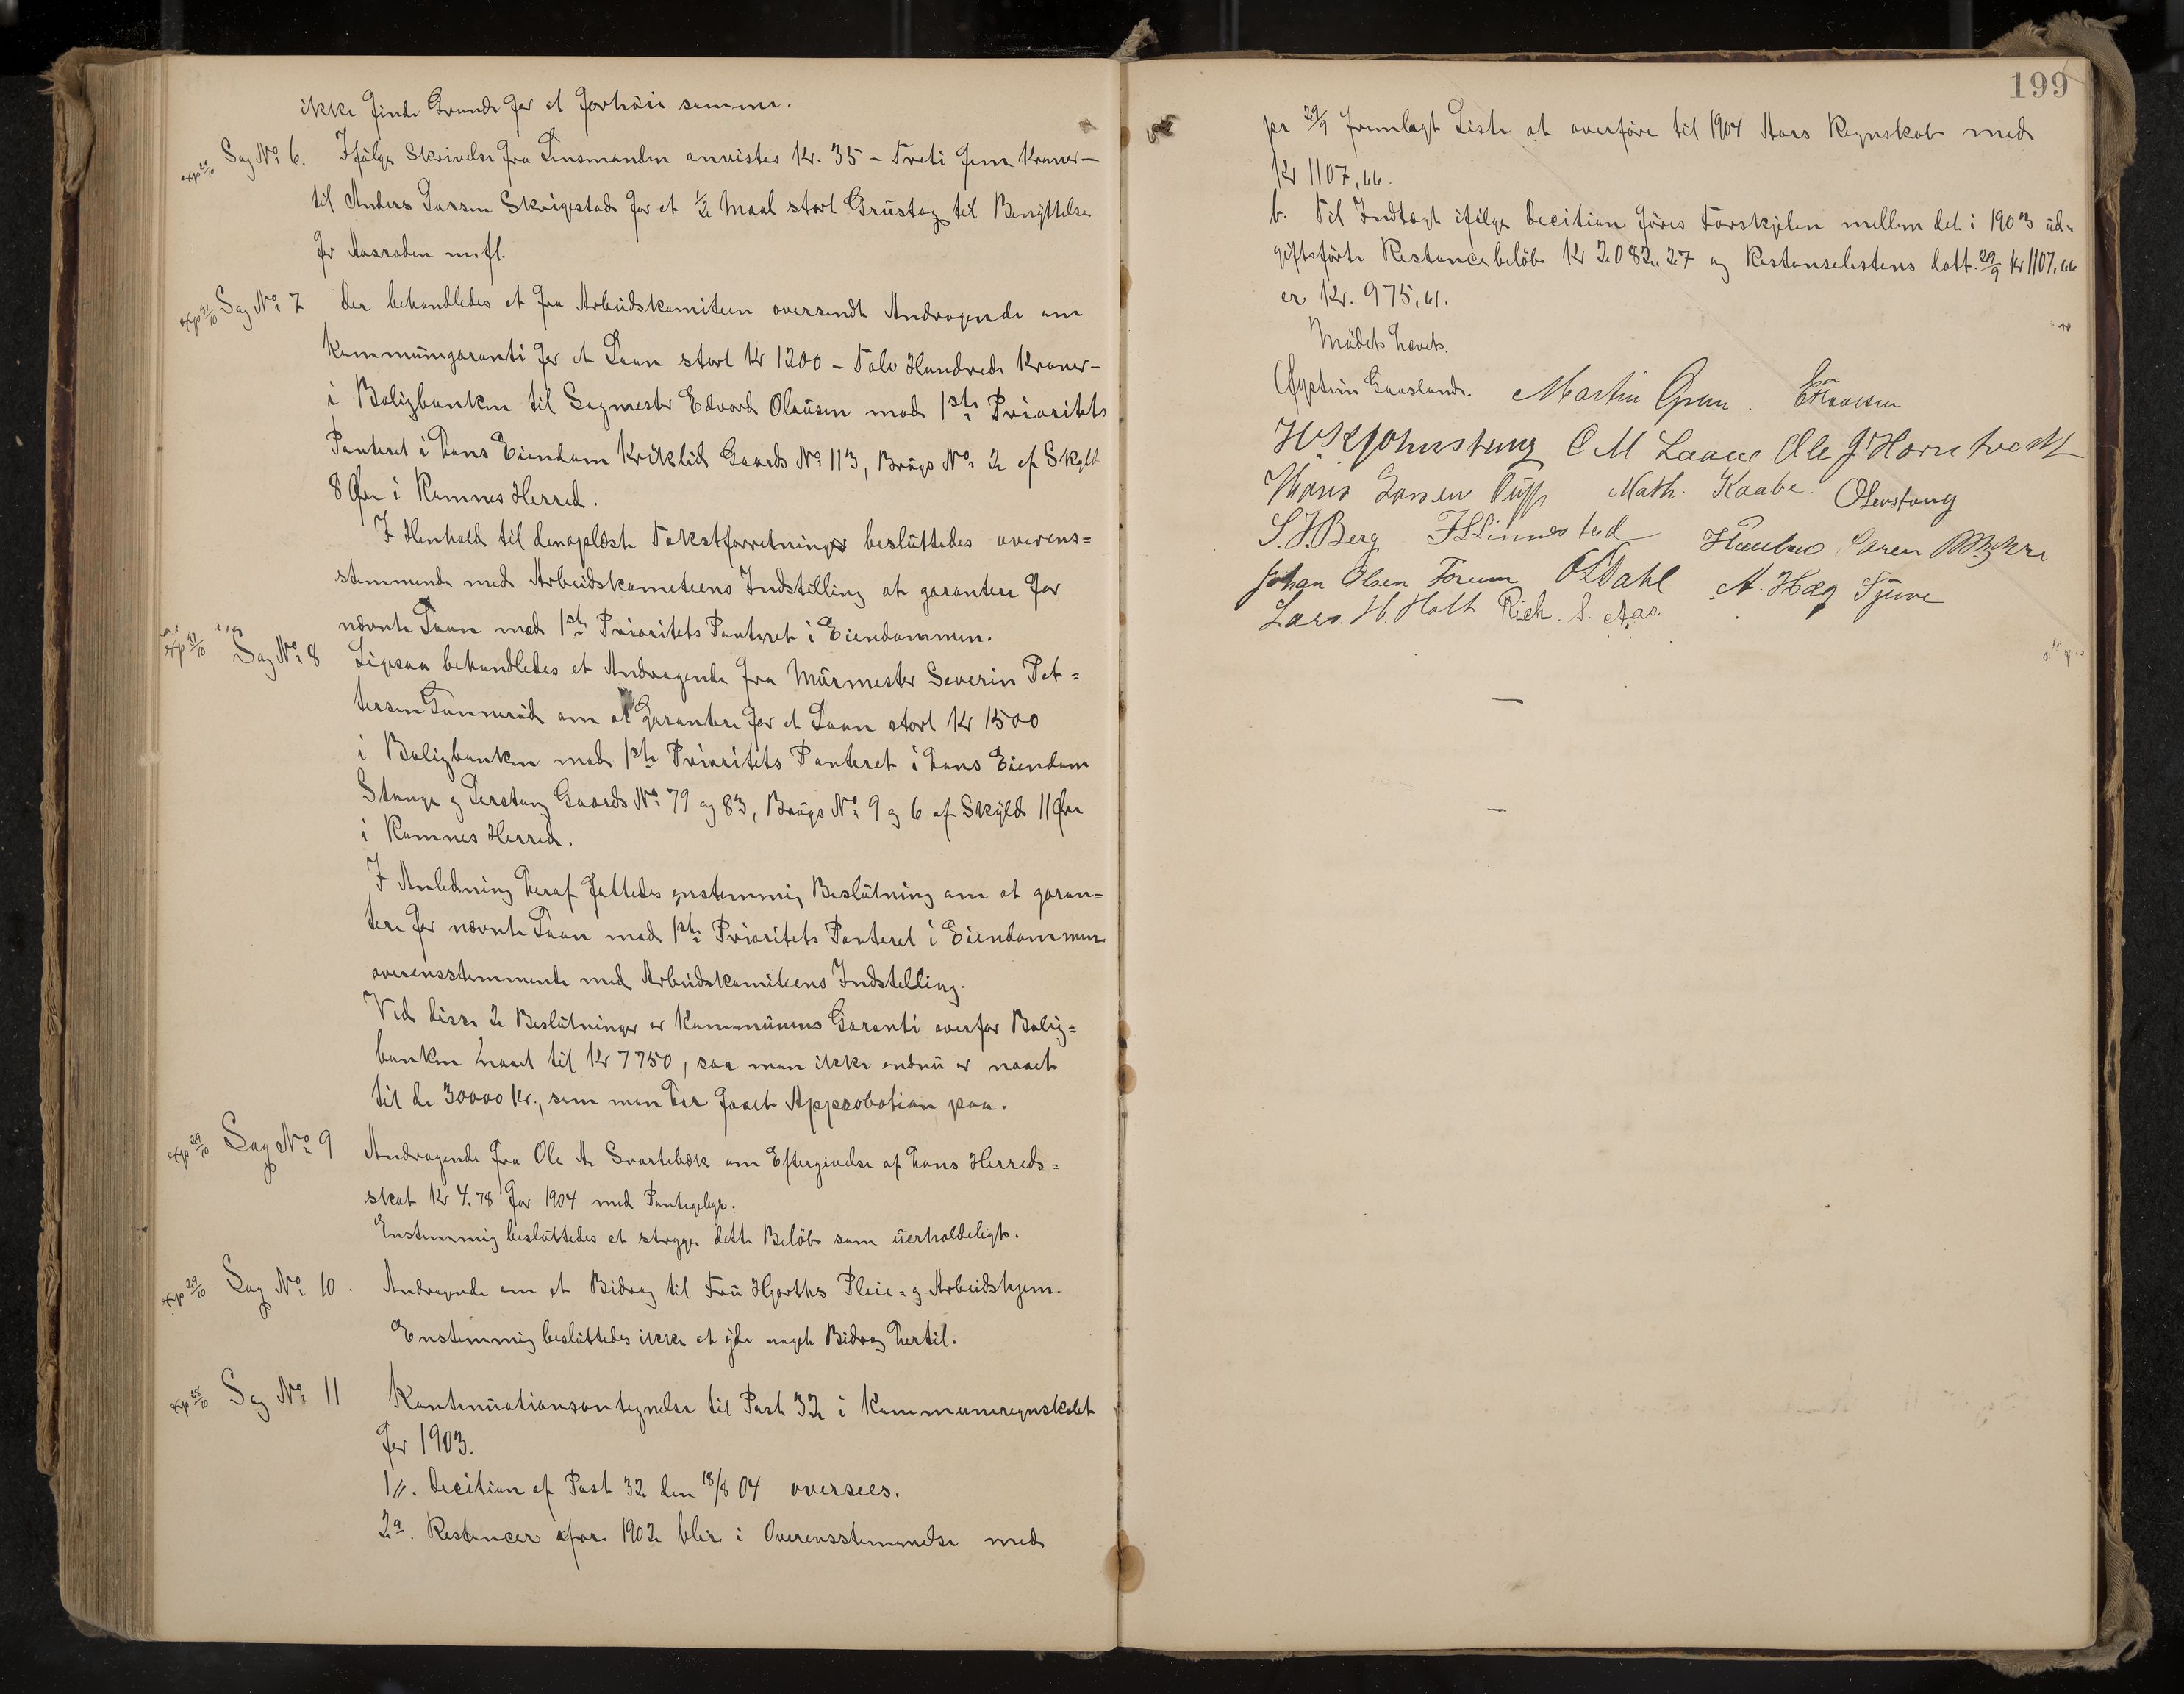 ikke finde Grunde for at forhöie samme.
exp 29/10 Sag No 6. Ifølge Skrivelse fra Lensmanden anvistes Kr. 35 – Treti fem Kroner –
til Anders Larsen Skrigestad for et ½ Maal stort Grustag til Benyttelse
for Aasroden m.fl.
exp 31/10 Sag No 7 Der behandledes et fra Arbeidskomiteen oversendt Andragende om
Kommungaranti for et Laan stort Kr 1200 – Tolv Hundrede Kroner –
i Boligbanken til Sagmester Edvard Olausen mod 1ste Prioritets
Panteret i hans Eiendom Kriklid Gaards No 113, Brugs No 2 af Skyld
8 Øre i Ramnes Herred.
I Henhold til den oplæste Takstforretning besluttedes overens=
stemmende med Arbeidskometeens Indstilling at garantere for
nævnte Laan mod 1ste Prioritets Panteret i Eiendommen.
exp 31/10 Sag No 8 Ligesaa behandledes et Andragende fra Murmester Severin Pet=
tersen Gunneröd om at Garantere for et Laan stort Kr 1500
i Boligbanken mod 1ste Prioritets Panteret i hans Eiendom
Stange og Lerstang Gaards No 79 og 83, Brugs No 9 og 6 af Skyld 11 Øre
i Ramnes Herred.
I Anledning heraf fattedes enstemmig Beslutning om at garan=
tere for nævnte Laan mod 1ste Prioritets Panteret i Eiendommen
overensstemmende med Arbeidskomiteens Indstelling.
Ved disse 2 Beslutninger er Kommunens Garanti overfor Bolig=
banken naaet til Kr 7750, saa man ikke endnu er naaet
til de 30000 Kr., som man her faaet Approbation paa.
exp 29/10 Sag No 9 Andragende fra Ole A. Svartebæk om Eftergivelse af hans Herreds=
skat Kr 4.78 for 1904 med Pantegebyr.
Enstemmig besluttedes at stryge dette Belöb som uerholdeligt.
exp 29/10 Sag No 10. Andragende om et Bidrag til Fru Hjorths Pleie- og Arbeidshjem.
Enstemmig besluttedes ikke at yde noget Bidrag hertil.
exp 28/10 Sag No 11 Kontinuationsantegnelse til Post 32 i Kommuneregnskabet
for 1903.
1. Decition af Post 32 den 18/8 04 oversees.
2a. Restancer for 1902 blir i Overensstemmelse med
199
pr 29/9 fremlagt Liste at overföre til 1904 Aars Regnskab med
Kr 1107,66.
b. Til Indtægt ifölge Decition föres Forskjelen mellem det i 1903 ud=
giftsförte Restancebelöb Kr 2082,27 og Restanselistens datt. 29/9 Kr 1107,66
er Kr. 975,61.
Mödet hævet.
Øystein Gaasland. Martin Gran.
C M Laane Ole J. Hornstvedt
Hans Math. Kaabe. O Lerstang
S. J. Berg F S Linnestad Søren
Johan Olsen Forum O L Dahl A. Hæg Tjuve
Lars. H. Holt Rich. S. Aas.